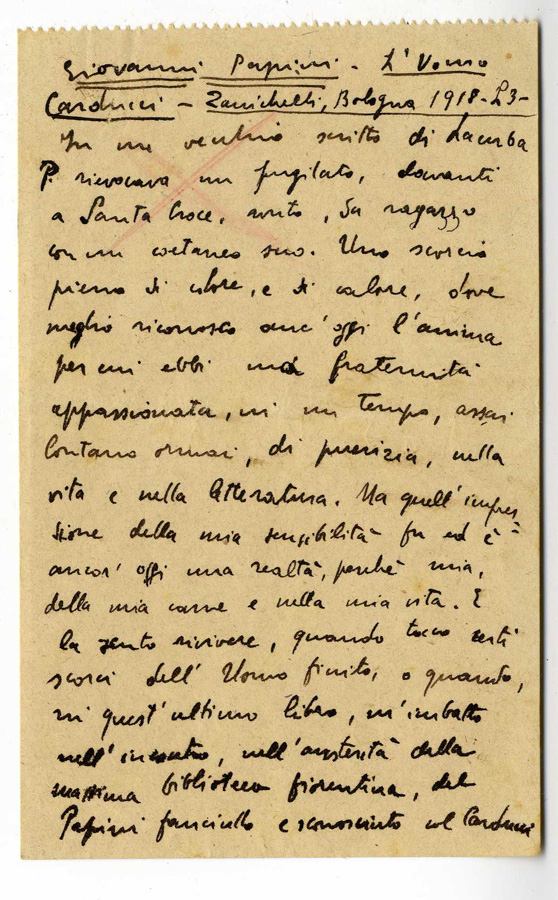 Giovanni Papini - L'Uomo
Carducci - Zanichelli, Bologna 1918 - L3 -
In un vecchio scritto di Lacerba
P. rievocava un pugilato, davanti
a Santa Croce, avuto, da ragazzo
con un coetaneo suo. Uno scorcio
pieno di colore, e di calore, dove
meglio riconosco anc' oggi l'anima
per cui ebbi una fraternità
appassionata, in un tempo, assai
lontano ormai, di puerizia, nella
vita e nella letteratura. Ma quell' impres-
sione della mia sensibilità fu ed è
ancor' oggi una realtà, perché mia,
della mia carne e nella mia vita. E
la sento rivivere, quando tocco certi
scorci dell' Uomo finito, o quando,
in quest' ultimo libro, m'imbatto
nell' incontro, nell' austerità della
massima biblioteca fiorentina, del
Papini fanciullo e sconosciuto col Carducci